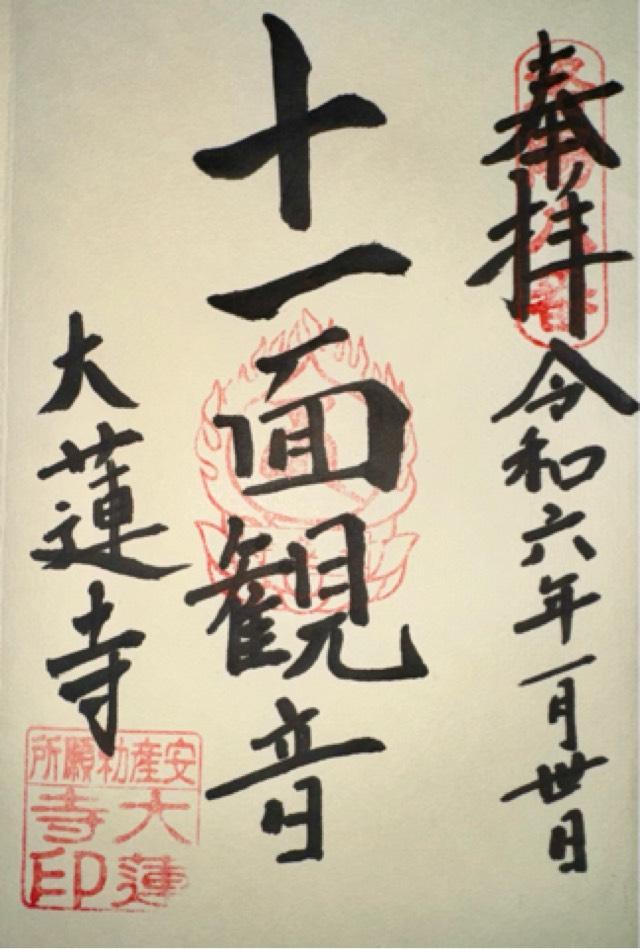 奉拝
令和六年一月卅日
十一面観音
大蓮寺
安産勅願所
大蓮
寺印